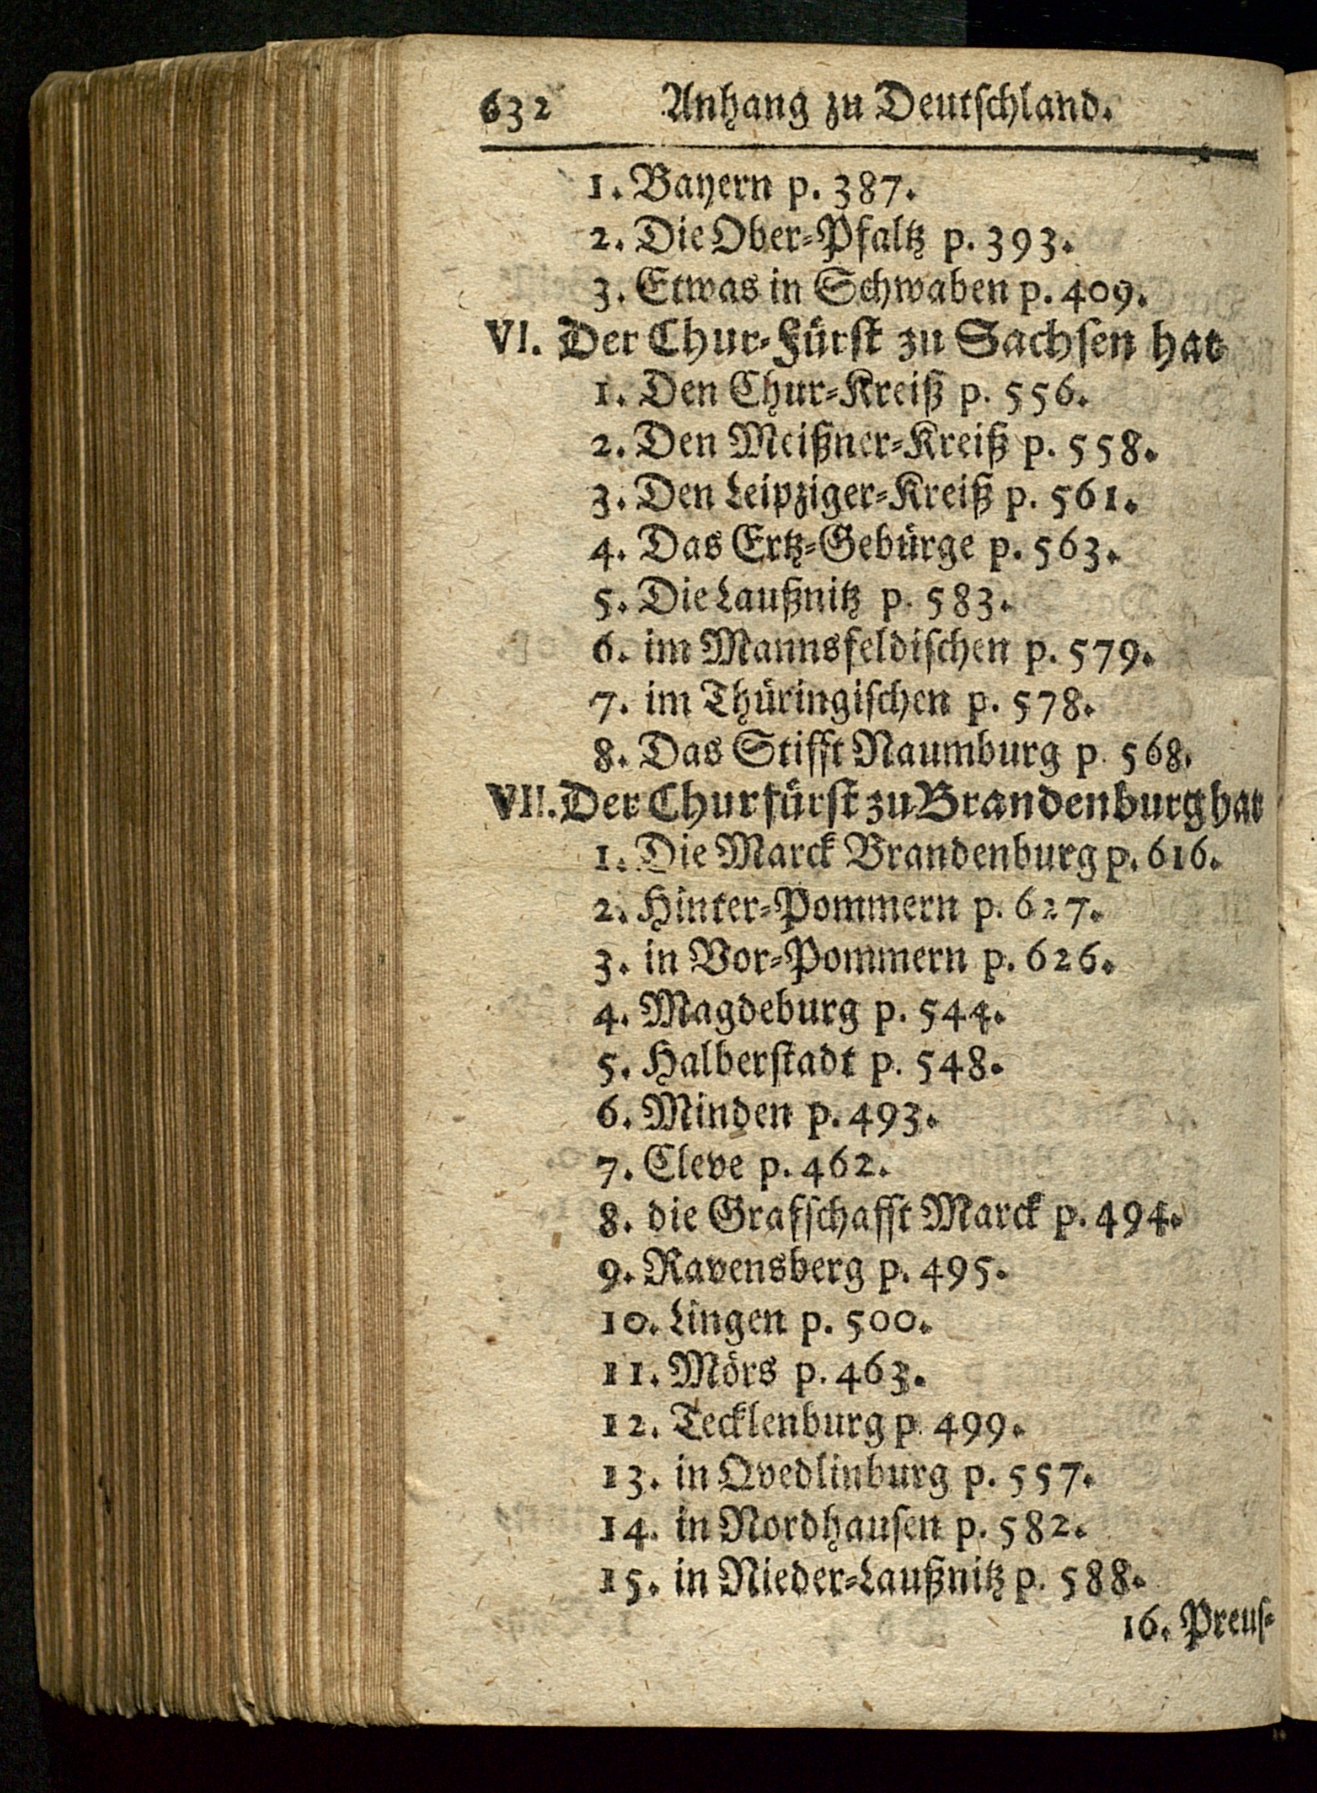 632 Anhang zu Deutschland.
1. Bayern p. 387.
2. Die Ober-Pfaltz p. 393.
3. Etwas in Schwaben p. 409.
VI. Der Chur-Fürst zu Sachsen hat
1. Den Chur-Kreiß p. 556.
2. Den Meißner-Kreiß p. 558.
3. Den Leipziger-Kreiß p. 561.
4. Das Ertz-Gebürge p. 563.
5. Die Laußnitz p. 583.
6. im Mannsfeldischen p. 579.
7. im Thüringischen p. 578.
8. Das Stifft Naumburg p. 568.
VII. Der Churfürst zu Brandenburg hat
1. Die Marck Brandenburg p. 616.
2. Hinter-Pommern p. 627.
3. in Vor-Pommern p. 626.
4. Magdeburg p. 544.
5. Halberstadt p. 548.
6. Minden p. 493.
7. Cleve p. 462.
8. die Grafschafft Marck p. 494.
9. Ravensberg p. 495.
10. Lingen p. 500.
11. Mörs p. 463.
12. Tecklenburg p. 499.
13. in Qvedlinburg p. 557.
14. in Nordhausen p. 582.
15. in Nieder-Laußnitz p. 588.
16. Preus-